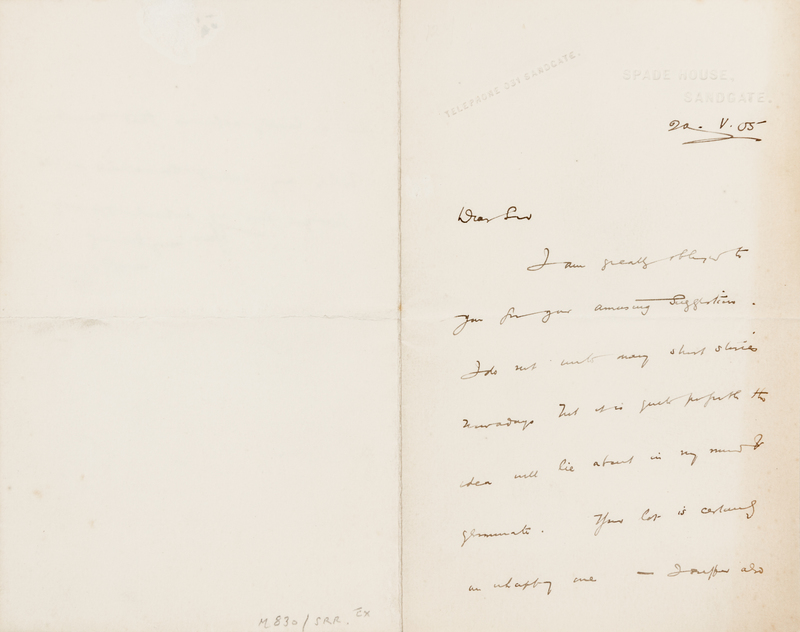 TELEPHONE 351 SANDGATE.
SPADE HOUSE,
SANDGATE.
20. V. 05
Dear Sir
I am greatly obliged to
you for your amusing suggestion.
I do not write many short stories
nowadays but it is quite possible the
idea will lie about in my mind &
germinate. Your lot is certainly
an unhappy one — I suffer also
M830/SRR. Ex